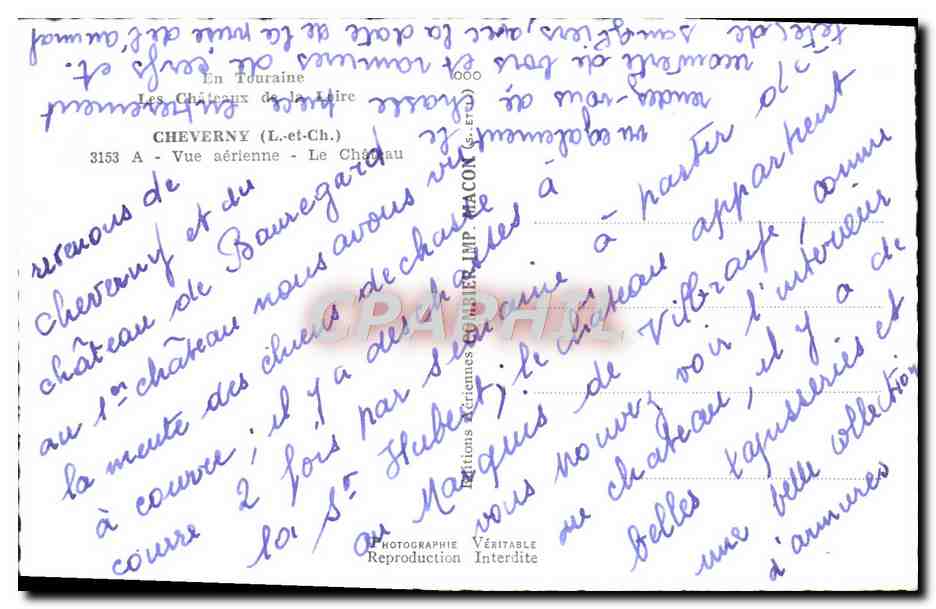 En Touraine
Les Châteaux de la Loire
CHEVERNY (L.-et-Ch.)
3153 A - Vue aérienne - Le Château
revenons de
cheverny et du
château de Bauregard
au 1er château nous avons vu
la meute des chiens de chasse à
à courre ; il y a des chasses à
courre 2 fois par semaine à partir d
la St Hubert ; le château appartient
au Marquis de Vibraye, comme
vous pouvez voir l'interieur
du chateau, il y a de
belles tapisseries et
une belle collection
d'armures
vu egalement le
rendez-vous de chasse
recouverte de bois et ramures de cerfs et
têtes de sangliers, avec la date de la prise de l'animal
Editions Aériennes COMBIER IMP. MACON (S.-ET-L.)
CPAPHIL
PHOTOGRAPHIE VÉRITABLE
Reproduction Interdite